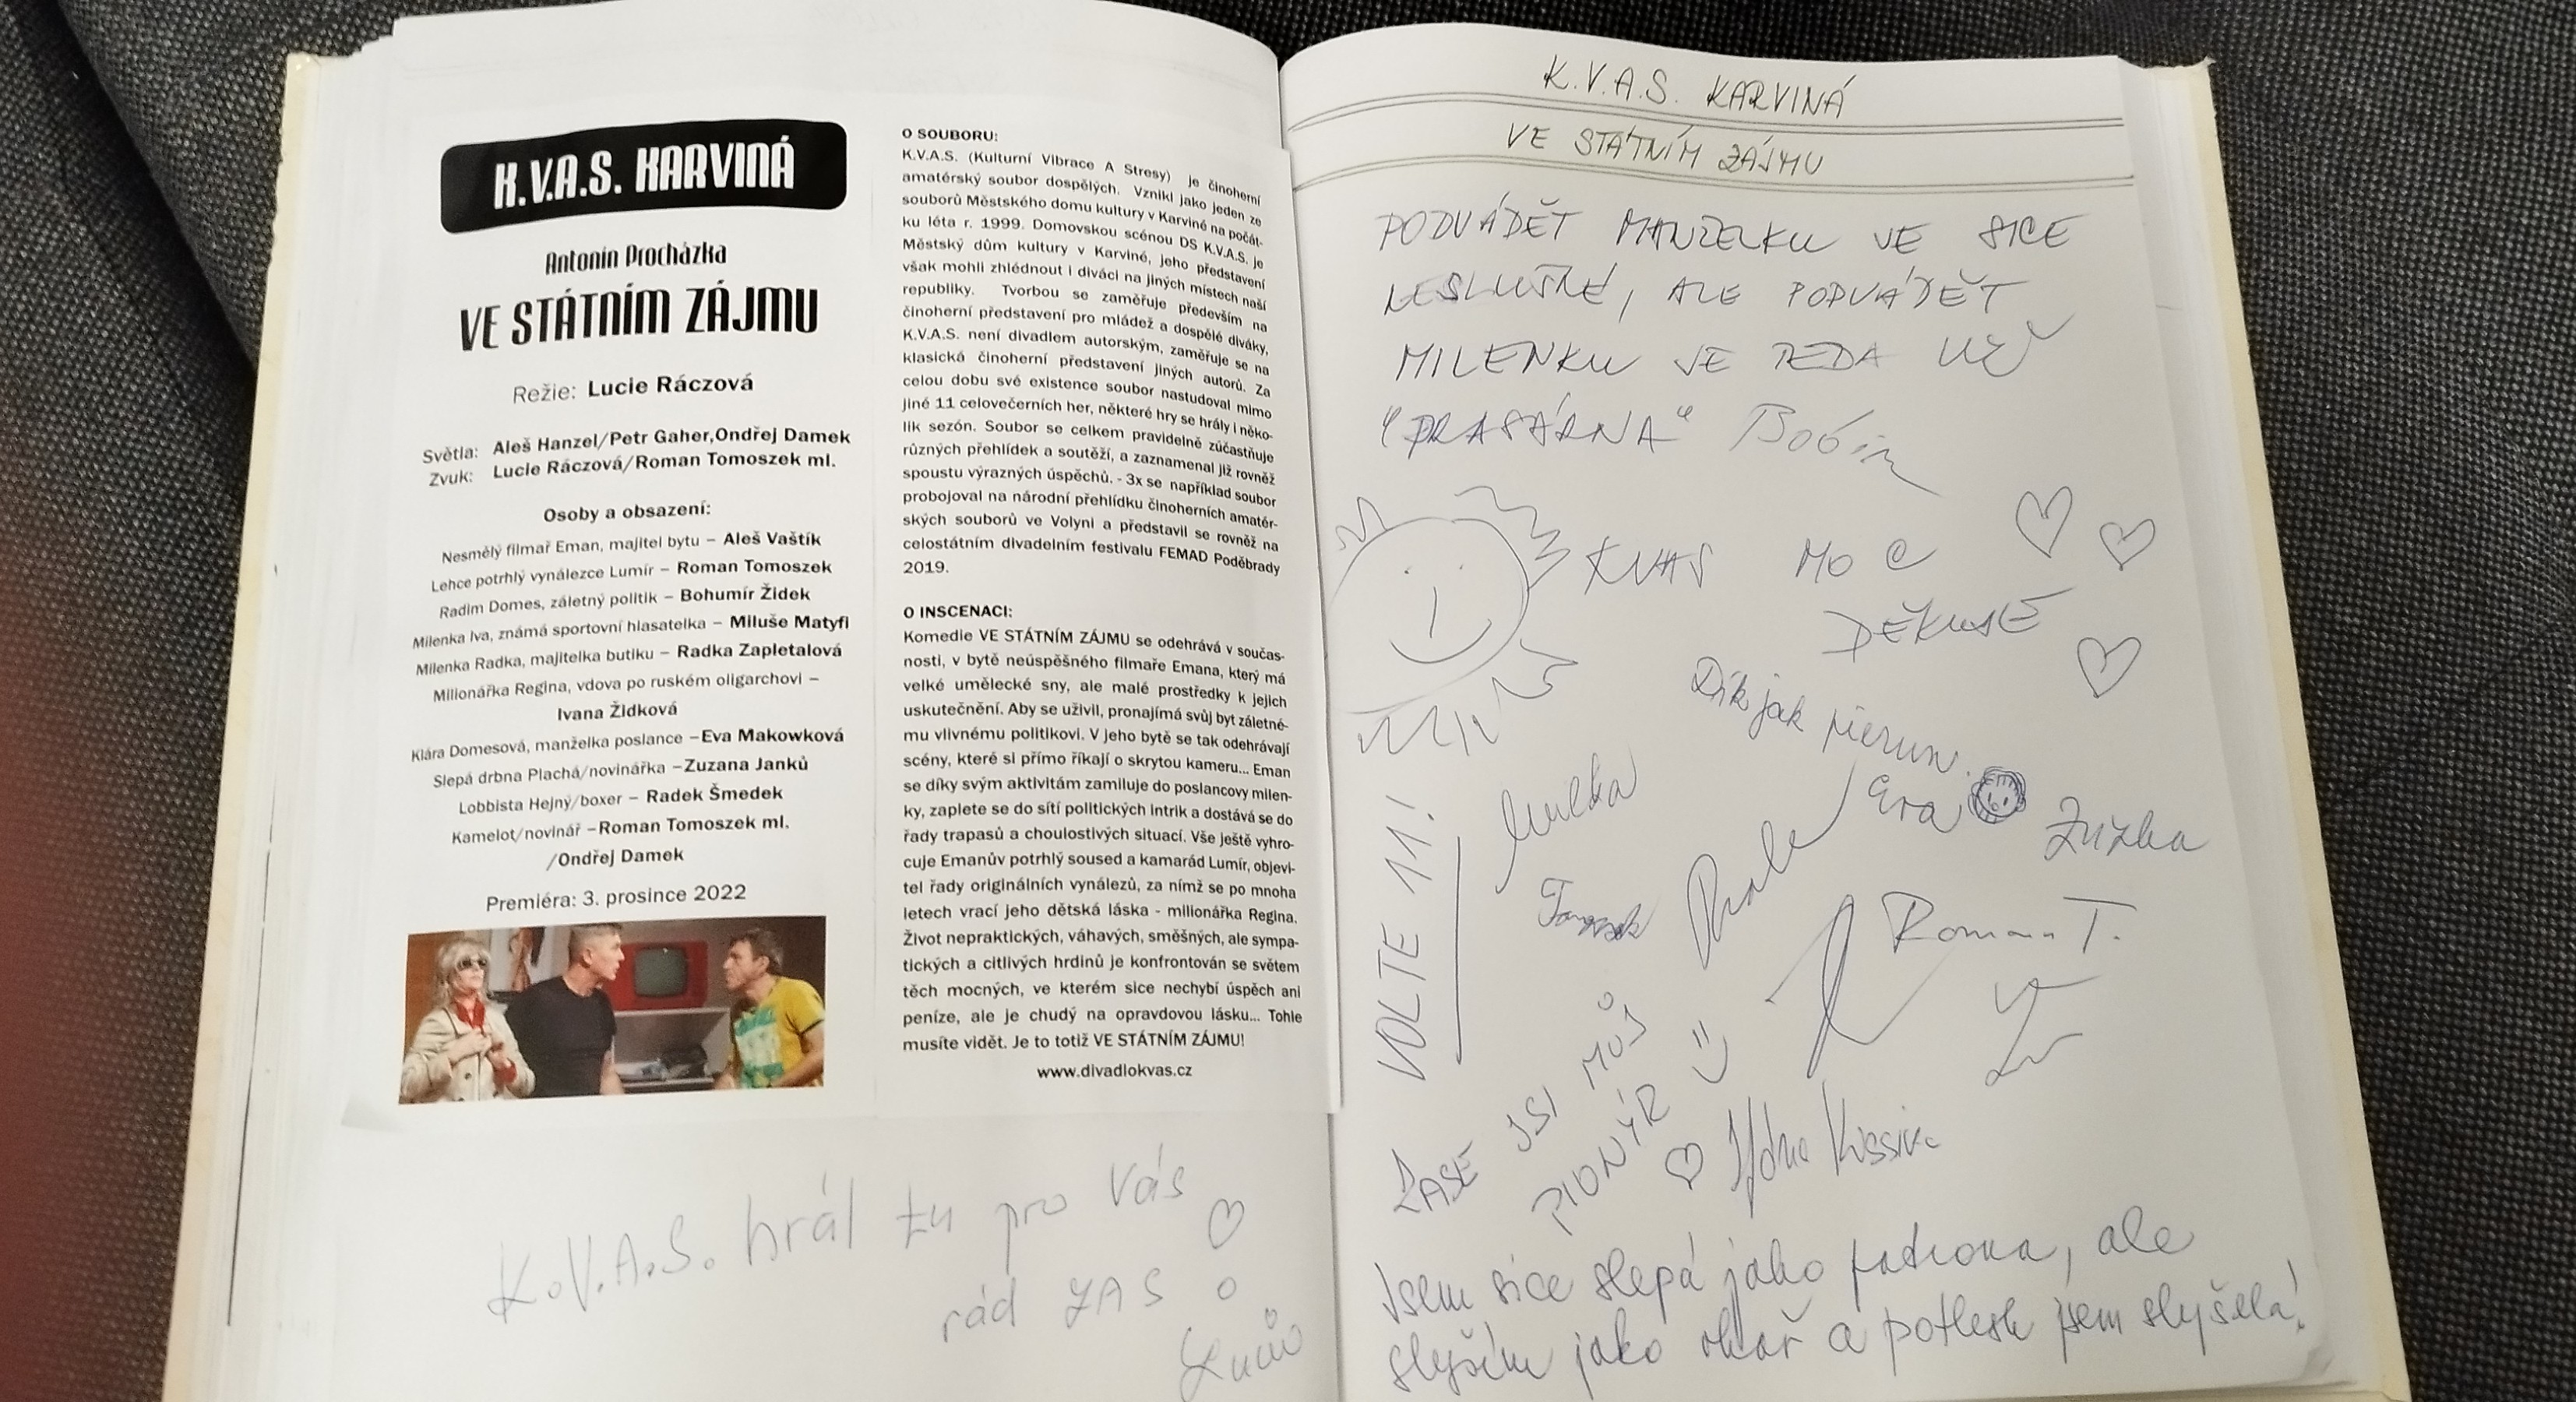 K.V.A.S. KARVINÁ
Antonín Procházka
VE STÁTNÍM ZÁJMU
Režie: Lucie Ráczová
Světla: Aleš Hanzel/Petr Gaher,Ondřej Damek
Zvuk: Lucie Ráczová/Roman Tomoszek ml.
Osoby a obsazení:
Nesmělý filmař Eman, majitel bytu – Aleš Vaštík
Lehce potrhlý vynálezce Lumír – Roman Tomoszek
Radim Domes, záletný politik – Bohumír Židek
Milenka Iva, známá sportovní hlasatelka – Miluše Matyfi
Milenka Radka, majitelka butiku – Radka Zapletalová
Milionářka Regina, vdova po ruském oligarchovi –
Ivana Židková
Klára Domesová, manželka poslance –Eva Makowková
Slepá drbna Plachá/novinářka –Zuzana Janků
Lobbista Hejný/boxer – Radek Šmedek
Kamelot/novinář –Roman Tomoszek ml.
/Ondřej Damek
Premiéra: 3. prosince 2022
O SOUBORU:
K.V.A.S. (Kulturní Vibrace A Stresy) je činoherní
amatérský soubor dospělých. Vznikl jako jeden ze
souborů Městského domu kultury v Karviné na počát-
ku léta r. 1999. Domovskou scénou DS K.V.A.S. je
Městský dům kultury v Karviné, jeho představení
však mohli zhlédnout i diváci na jiných místech naší
republiky. Tvorbou se zaměřuje především na
činoherní představení pro mládež a dospělé diváky,
K.V.A.S. není divadlem autorským, zaměřuje se na
klasická činoherní představení jiných autorů. Za
celou dobu své existence soubor nastudoval mimo
jiné 11 celovečerních her, některé hry se hrály i něko-
lik sezón. Soubor se celkem pravidelně zúčastňuje
různých přehlídek a soutěží, a zaznamenal již rovněž
spoustu výrazných úspěchů. - 3x se například soubor
probojoval na národní přehlídku činoherních amatér-
ských souborů ve Volyni a představil se rovněž na
celostátním divadelním festivalu FEMAD Poděbrady
2019.
O INSCENACI:
Komedie VE STÁTNÍM ZÁJMU se odehrává v součas-
nosti, v bytě neúspěšného filmaře Emana, který má
velké umělecké sny, ale malé prostředky k jejich
uskutečnění. Aby se uživil, pronajímá svůj byt záletné-
mu vlivnému politikovi. V jeho bytě se tak odehrávají
scény, které si přímo říkají o skrytou kameru... Eman
se díky svým aktivitám zamiluje do poslancovy milen-
ky, zaplete se do sítí politických intrik a dostává se do
řady trapasů a choulostivých situací. Vše ještě vyhro-
cuje Emanův potrhlý soused a kamarád Lumír, objevi-
tel řady originálních vynálezů, za nímž se po mnoha
letech vrací jeho dětská láska - milionářka Regina.
Život nepraktických, váhavých, směšných, ale sympa-
tických a citlivých hrdinů je konfrontován se světem
těch mocných, ve kterém sice nechybí úspěch ani
peníze, ale je chudý na opravdovou lásku... Tohle
musíte vidět. Je to totiž VE STÁTNÍM ZÁJMU!
www.divadlokvas.cz
K.V.A.S. hrál tu pro Vás
rád ZAS
K.V.A.S. KARVINÁ
VE STÁTNÍM ZÁJMU
PODVÁDĚT MANŽELKU JE SICE
NESLUŠNÉ, ALE PODVÁDĚT
MILENKU JE TEDA UŽ
"PRASÁRNA"
KVAS MOC
DĚKUJE
Dík jak pierun.
VOLTE 11!
Milka
Eva
Zuzka
Roman T.
ZASE JSI MŮJ
PIONÝR
Jsem sice slepá jako patrona, ale
slyším jako ohař a potlesk jsem slyšela!